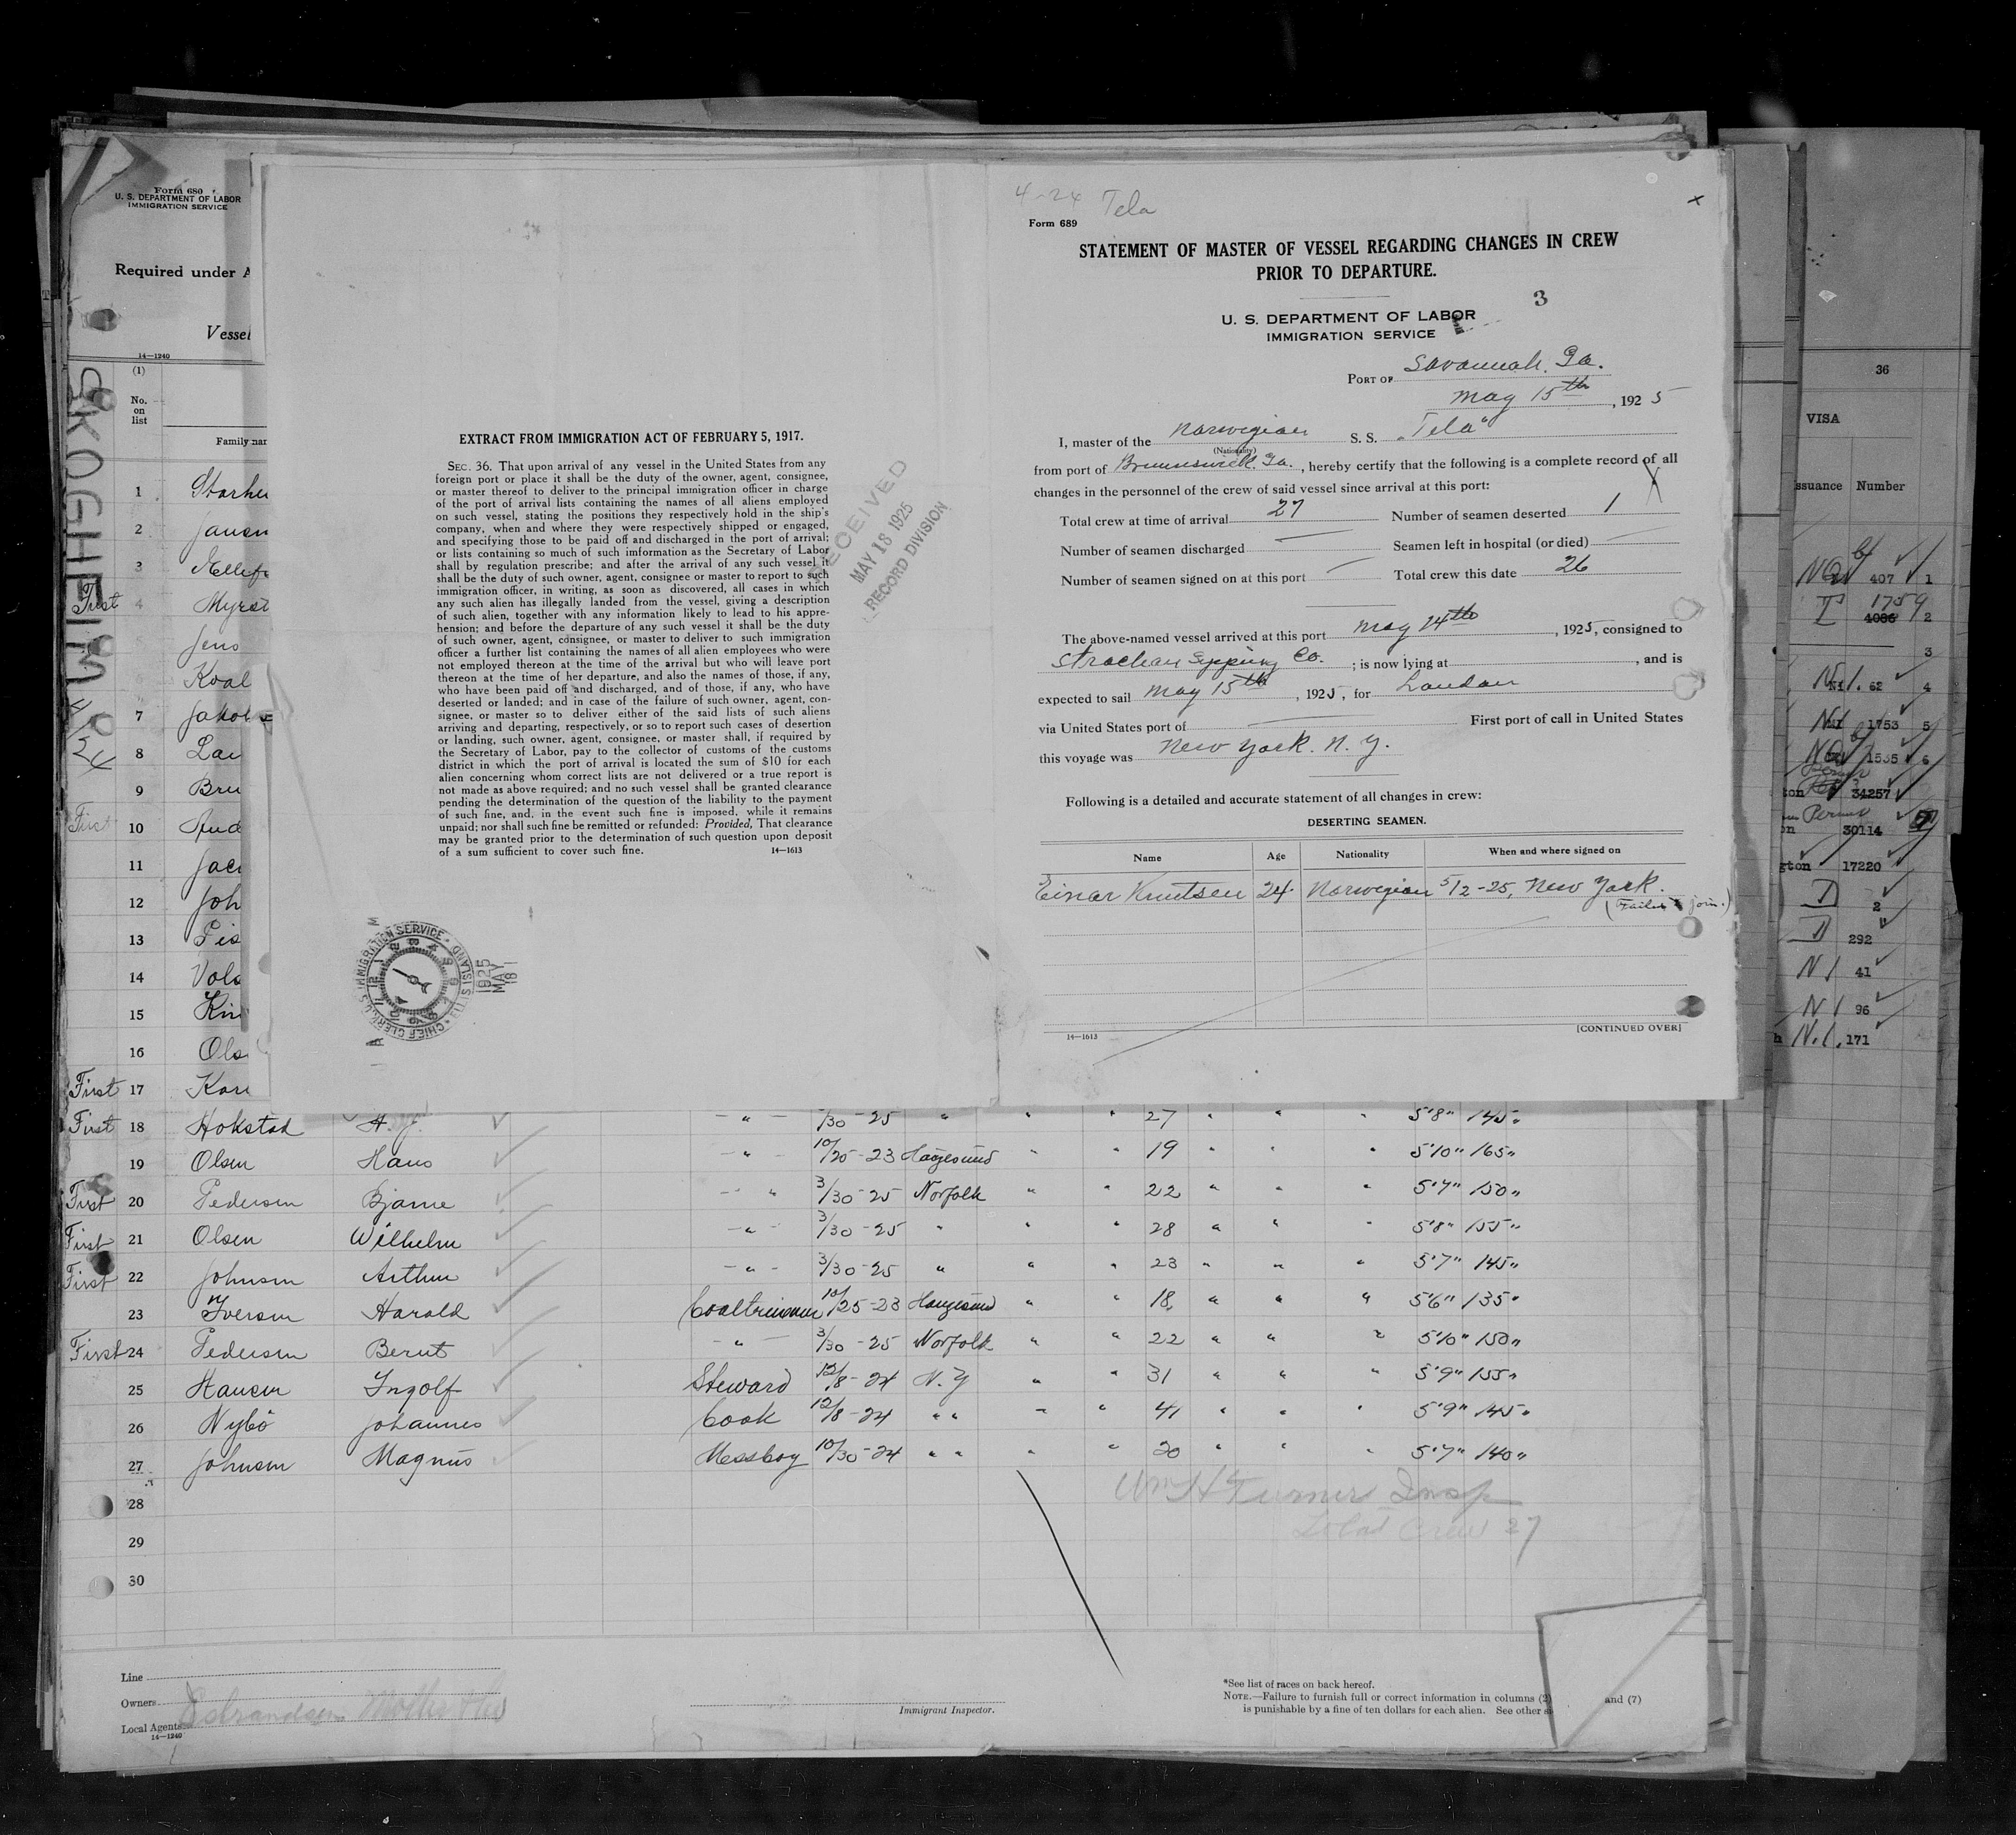 Form 680
U. S. DEPARTMENT OF LABOR
IMMIGRATION SERVICE
Required under A
Vessel
14—1240
(1)
No.
on
list
Family nar
SKOGHEIM 4/24
1
2
3
First 4
5
6
7
8
9
First 10
11
12
13
14
15
16
First 17
EXTRACT FROM IMMIGRATION ACT OF FEBRUARY 5, 1917.
SEC. 36. That upon arrival of any vessel in the United States from any
foreign port or place it shall be the duty of the owner, agent, consignee,
or master thereof to deliver to the principal immigration officer in charge
of the port of arrival lists containing the names of all aliens employed
on such vessel, stating the positions they respectively hold in the ship's
company, when and where they were respectively shipped or engaged,
and specifying those to be paid off and discharged in the port of arrival;
or lists containing so much of such imformation as the Secretary of Labor
shall by regulation prescribe; and after the arrival of any such vessel it
shall be the duty of such owner, agent, consignee or master to report to such
immigration officer, in writing, as soon as discovered, all cases in which
any such alien has illegally landed from the vessel, giving a description
of such alien, together with any information likely to lead to his appre-
hension; and before the departure of any such vessel it shall be the duty
of such owner, agent, consignee, or master to deliver to such immigration
officer a further list containing the names of all alien employees who were
not employed thereon at the time of the arrival but who will leave port
thereon at the time of her departure, and also the names of those, if any,
who have been paid off and discharged, and of those, if any, who have
deserted or landed; and in case of the failure of such owner, agent, con-
signee, or master so to deliver either of the said lists of such aliens
arriving and departing, respectively, or so to report such cases of desertion
or landing, such owner, agent, consignee, or master shall, if required by
the Secretary of Labor, pay to the collector of customs of the customs
district in which the port of arrival is located the sum of $10 for each
alien concerning whom correct lists are not delivered or a true report is
not made as above required; and no such vessel shall be granted clearance
pending the determination of the question of the liability to the payment
of such fine, and, in the event such fine is imposed, while it remains
unpaid; nor shall such fine be remitted or refunded: Provided, That clearance
may be granted prior to the determination of such question upon deposit
of a sum sufficient to cover such fine. 14—1613
RECEIVED
MAY 18 1925
RECORD DIVISION
CHIEF CLERK U.S. IMMIGRATION SERVICE
1925
MAY
18
4-24 Tela
Form 689
STATEMENT OF MASTER OF VESSEL REGARDING CHANGES IN CREW
PRIOR TO DEPARTURE.
3
U. S. DEPARTMENT OF LABOR
IMMIGRATION SERVICE
PORT OF Savannah, Ga.
May 15th, 1925
I, master of the Norwegian S. S. „Tela"
(Nationality)
from port of Brunnswick, Ga., hereby certify that the following is a complete record of all
changes in the personnel of the crew of said vessel since arrival at this port:
Total crew at time of arrival 27 Number of seamen deserted 1
Number of seamen discharged — Seamen left in hospital (or died) —
Number of seamen signed on at this port — Total crew this date 26
The above-named vessel arrived at this port May 14th, 1925, consigned to
Strachan Co. ; is now lying at , and is
expected to sail May 15th, 1925, for London
via United States port of — First port of call in United States
this voyage was New York. N. Y.
Following is a detailed and accurate statement of all changes in crew:
DESERTING SEAMEN.
Name Age Nationality When and where signed on
Einar Knutsen 24 Norwegian 5/2-25, New York.
(Failed to join.)
14—1613 [CONTINUED OVER]
36
VISA
ssuance Number
407 1
1759
4086 2
3
N1. 62 4
1753 5
1535 6
34257
30114
gton 17220
2
D 292
N1 41
N1 96
N.1. 171
First 18 Hokstad 3/30-25 " " " 27 " " " 5'8" 145"
19 Olsen Hans " 10/25-23 Haugesund " " 19 " " " 5'10" 165"
First 20 Pedersen Bjarne " 3/30-25 Norfolk " " 22 " " " 5'7" 150"
First 21 Olsen Wilhelm " 3/30-25 " " " 28 " " " 5'8" 155"
First 22 Johnsen Arthur " 3/30-25 " " " 23 " " " 5'7" 145"
23 Iversen Harald Coaltrimmer 10/25-23 Haugesund " " 18 " " " 5'6" 135"
First 24 Pedersen Bernt " 3/30-25 Norfolk " " 22 " " " 5'10" 150"
25 Hansen Ingolf Steward 12/8-24 N.Y " " 31 " " " 5'9" 155"
26 Nybö Johannes Cook 12/8-24 " " " " 41 " " " 5'9" 145"
27 Johnsen Magnus Messboy 10/30-24 " " " " 20 " " " 5'7" 140"
28 Wm H Turner Insp
Total Crew 27
29
30
Line
Owners
Local Agents
14—1240
Immigrant Inspector.
*See list of races on back hereof.
NOTE.—Failure to furnish full or correct information in columns (2) and (7)
is punishable by a fine of ten dollars for each alien. See other si